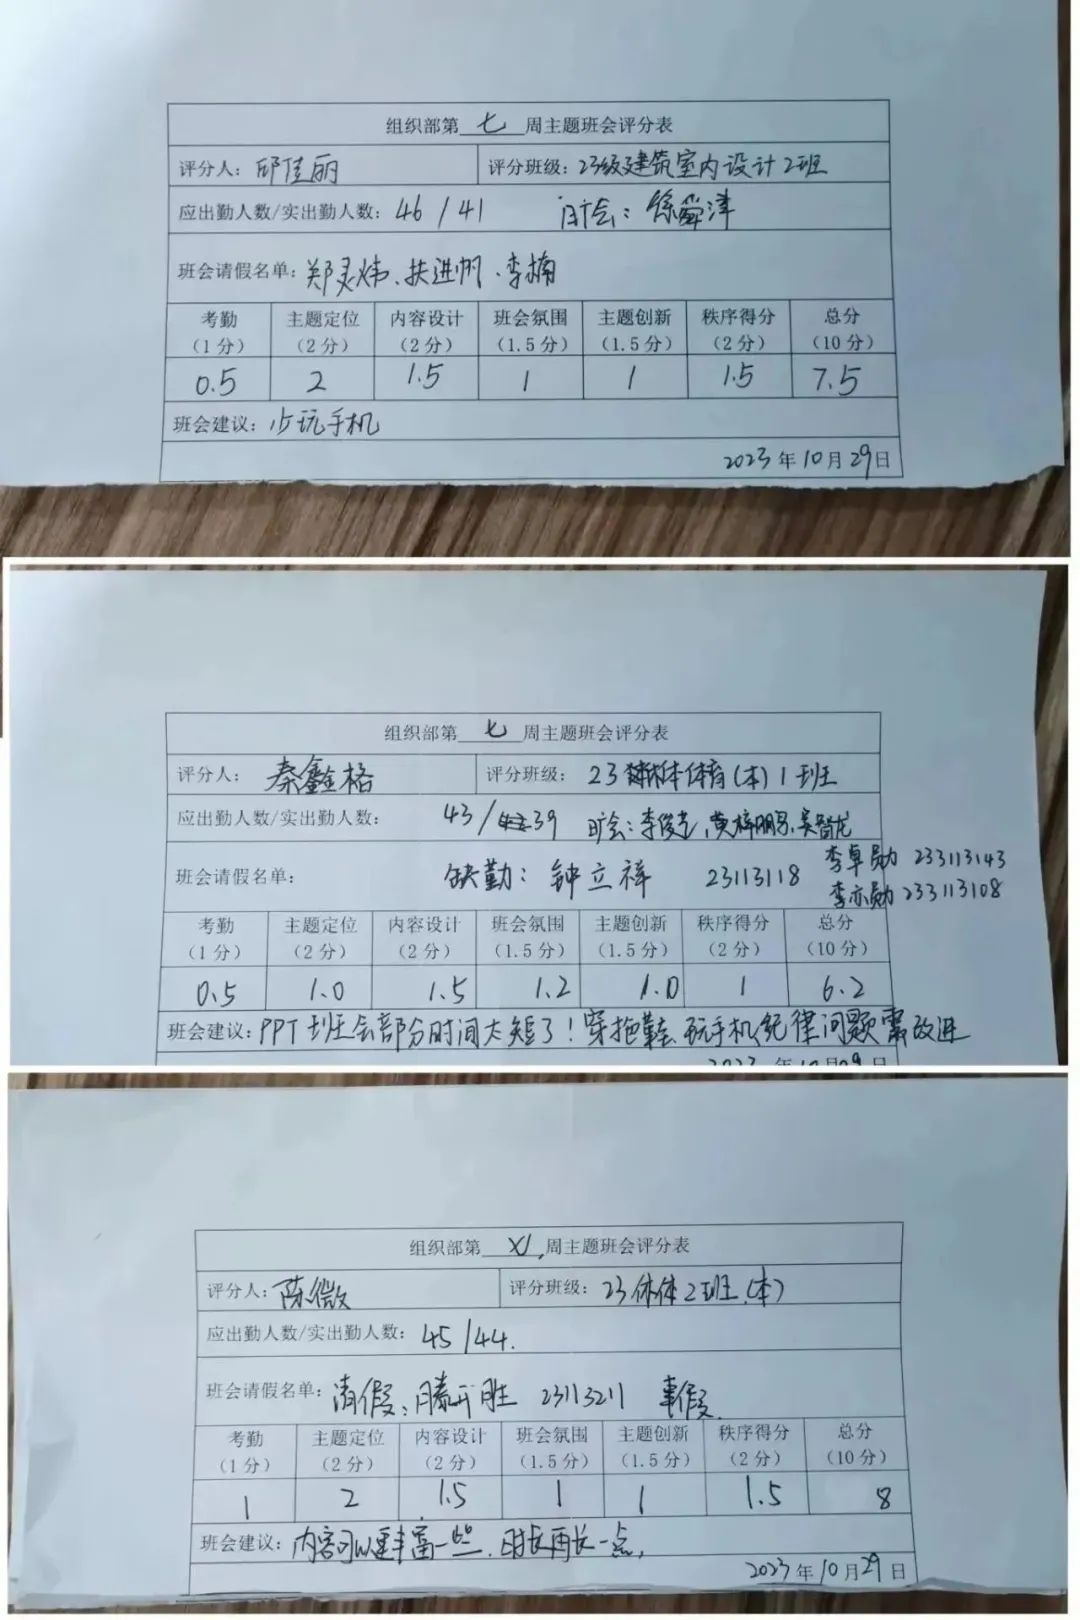 组织部第七周主题班会评分表
评分人：邱佳丽 评分班级：23级建筑室内设计2班
应出勤人数/实出勤人数：46/41 旷会：徐舜津
班会请假名单：郑灵炜、扶进帆、李楠
考勤 主题定位 内容设计 班会氛围 主题创新 秩序得分 总分
（1分） （2分） （2分） （1.5分） （1.5分） （2分） （10分）
0.5 2 1.5 1 1 1.5 7.5
班会建议：少玩手机
2023年10月29日
组织部第七周主题班会评分表
评分人：秦鑫格 评分班级：23体育(本)1班
应出勤人数/实出勤人数：43/39 旷会：李俊，黄梓明，吴智龙
班会请假名单：缺勤：钟立祥 23113118 李卓勋 233113143
李亦勋 233113108
考勤 主题定位 内容设计 班会氛围 主题创新 秩序得分 总分
（1分） （2分） （2分） （1.5分） （1.5分） （2分） （10分）
0.5 1.0 1.5 1.2 1.0 1 6.2
班会建议：PPT班会部分时间太短了！穿拖鞋、玩手机纪律问题需改进
2023年10月29日
组织部第周主题班会评分表
评分人：陈微 评分班级：23休体2班(本)
应出勤人数/实出勤人数：45/44.
班会请假名单：请假：滕胜 23113211 事假
考勤 主题定位 内容设计 班会氛围 主题创新 秩序得分 总分
（1分） （2分） （2分） （1.5分） （1.5分） （2分） （10分）
1 2 1.5 1 1 1.5 8
班会建议：内容可以丰富一些，时长再长一点，
2023年10月29日